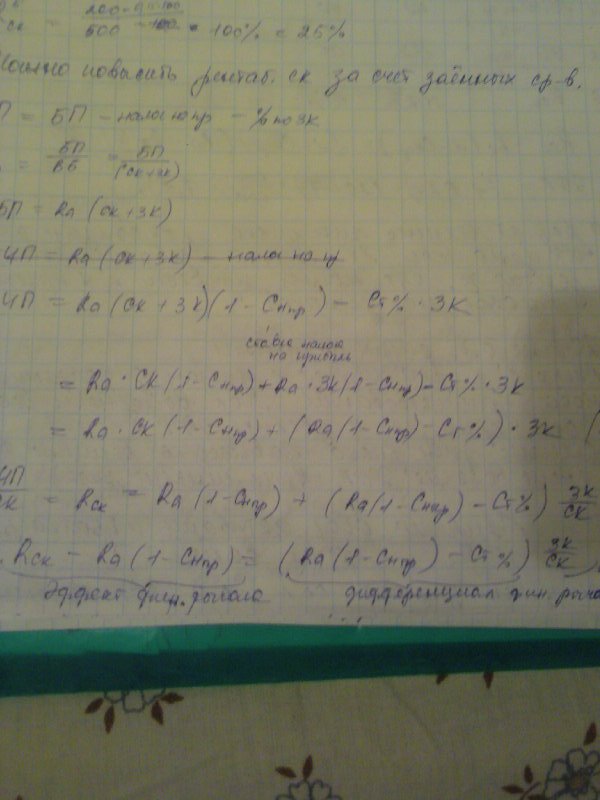 200
500 · 100% = 25%
повысить рентаб. СК за счет заёмных ср-в.
= БП - налог на пр - % по ЗК
= БП/ВБ = БП/(СК+ЗК)
БП = Ra (СК+ЗК)
ЧП = Ra (СК+ЗК) - налог на пр
ЧП = Ra (СК+ЗК)(1-Снпр) - Ст% · ЗК
ставка налога
на прибыль
= Ra · СК (1-Снпр) + Ra · ЗК (1-Снпр) - Ст% · ЗК
= Ra · СК (1-Снпр) + (Ra (1-Снпр) - Ст%) · ЗК (
ЧП/СК = Rск = Ra (1-Снпр) + (Ra (1-Снпр) - Ст%) ЗК/СК
Rск - Ra (1-Снпр) = (Ra (1-Снпр) - Ст%) ЗК/СК
Эффект фин. рычага дифференциал фин. рыча